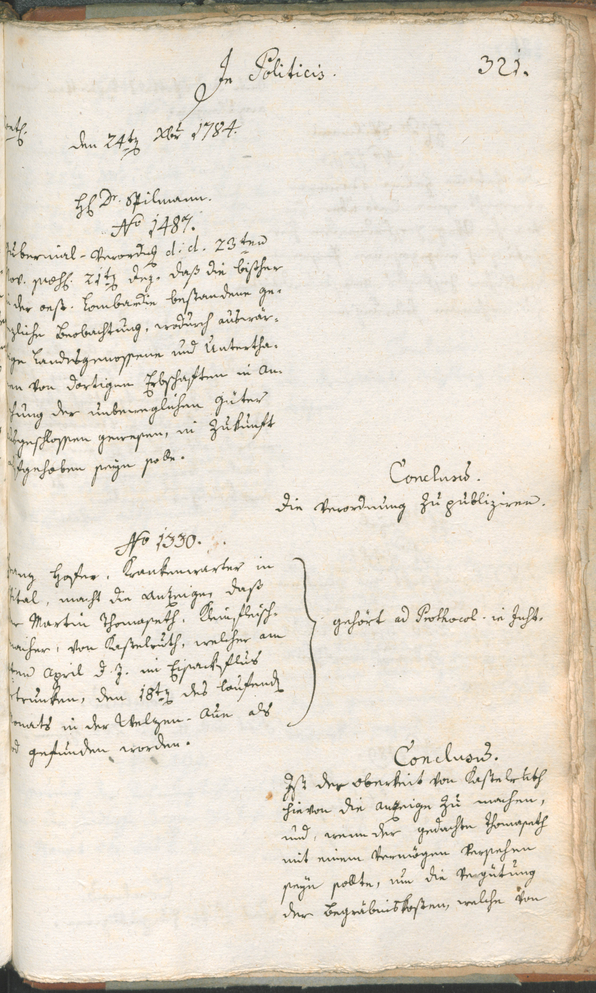 In Politicis.
321.
den 24tg Xbr 1784.
HE Dr. Spilmann.
No 1487.
ubernial-Verordng d: d. 23ten
ov. 21tg Dez. daß die bisher
der oest. Lombardie bestandene ge-
zliche Beobachtung, wodurch auswär-
ge Landesgenossene und Untertha-
en von dortigen Erbschaften in An-
hung der unbeweglichen Güter
sgeschlossen gewesen, in Zukunft
fgehoben seyn solle.
Conclusũ.
Die Verordnung zu publiziren.
No 1330.
ranz Hofer, Krankenwarter in
ital, macht die Anzeige, daß
r Martin Thomaseth,
acher, von Kastelruth, welcher am
ten April d. J. im Eisackflus
trunken, den 18tg des laufend
onats in der Welzen-Aue als
d gefunden worden.
gehört ad Prothocol. in Just.
Conclusũ.
Ist der Oberkeit von Kastelruth
hievon die Anzeige zu machen,
und, wenn der gedachte Thomaseth
mit einem Vermögen versehen
seyn sollte, um die Vergütung
der Begräbniskosten, welche von